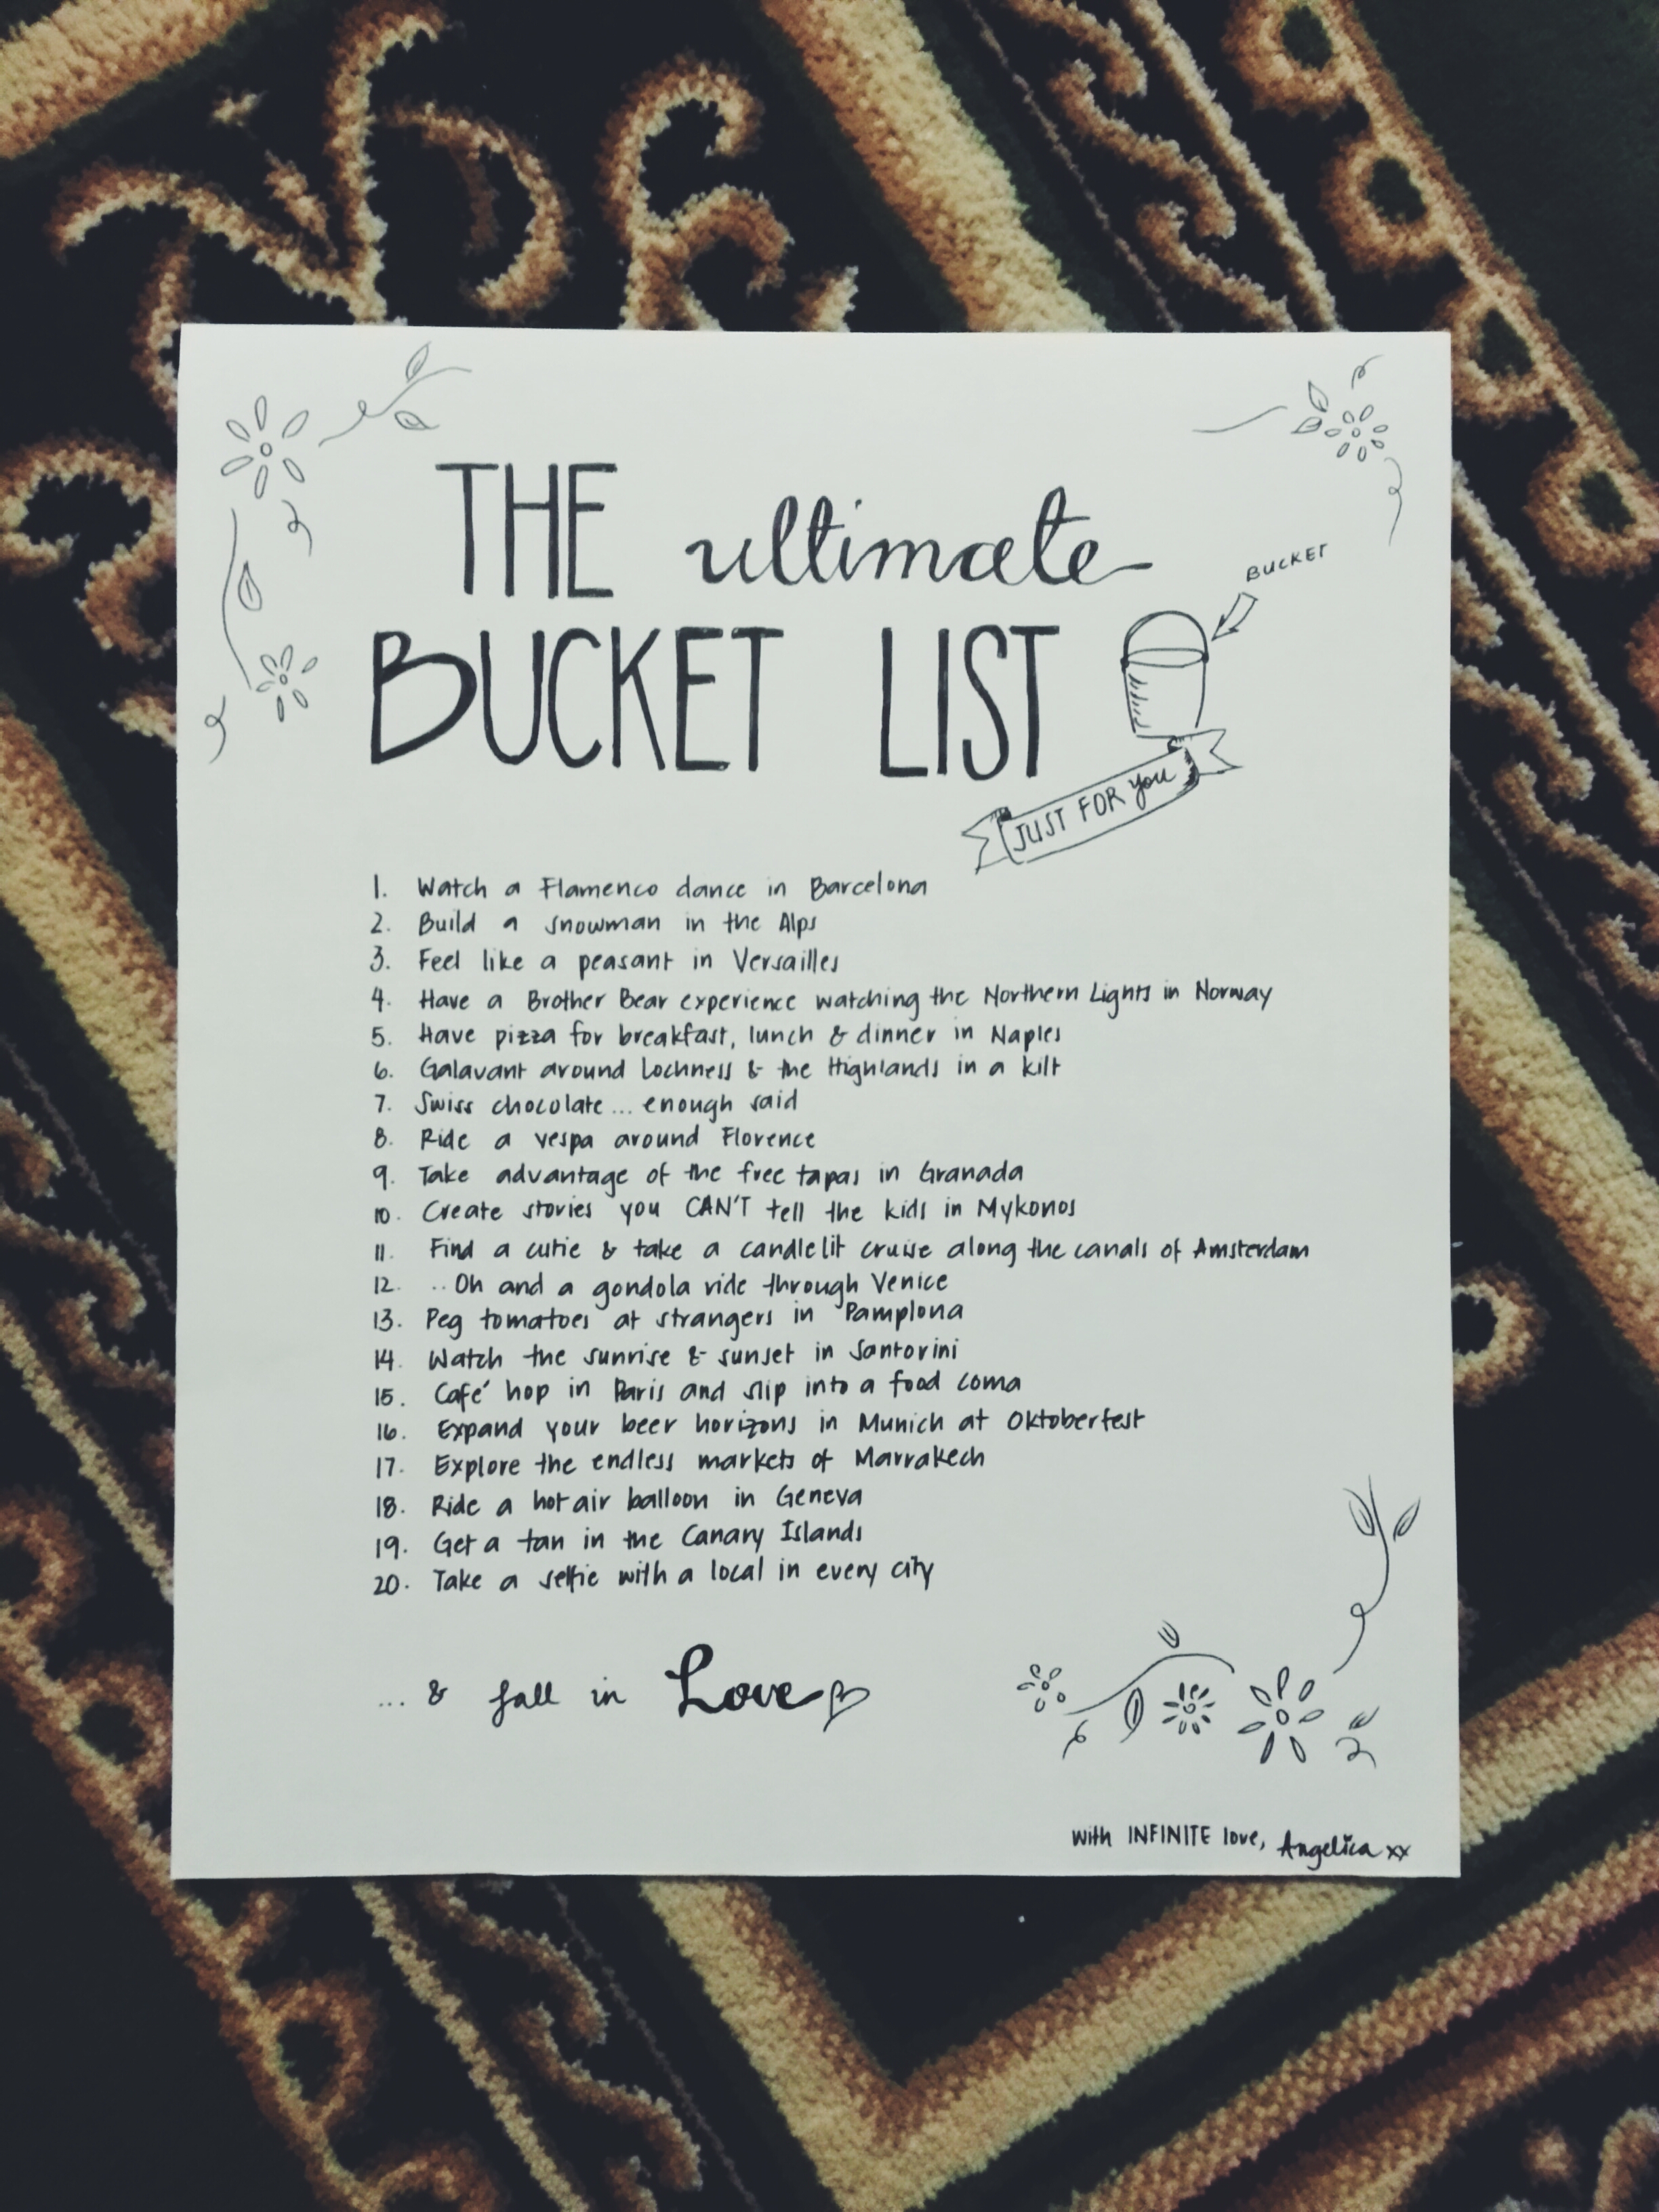 THE ultimate
BUCKET LIST
BUCKET
JUST FOR you
1. Watch a Flamenco dance in Barcelona
2. Build a snowman in the Alps
3. Feel like a peasant in Versailles
4. Have a Brother Bear experience watching the Northern Lights in Norway
5. Have pizza for breakfast, lunch & dinner in Naples
6. Galavant around Lochness & the Highlands in a kilt
7. Swiss chocolate... enough said
8. Ride a vespa around Florence
9. Take advantage of the free tapas in Granada
10. Create stories you CAN'T tell the kids in Mykonos
11. Find a cutie & take a candlelit cruise along the canals of Amsterdam
12. ..Oh and a gondola ride through Venice
13. Peg tomatoes at strangers in Pamplona
14. Watch the sunrise & sunset in Santorini
15. Café hop in Paris and slip into a food coma
16. Expand your beer horizons in Munich at Oktoberfest
17. Explore the endless markets of Marrakech
18. Ride a hot air balloon in Geneva
19. Get a tan in the Canary Islands
20. Take a selfie with a local in every city
... & fall in Love
with INFINITE love, Angelica xx